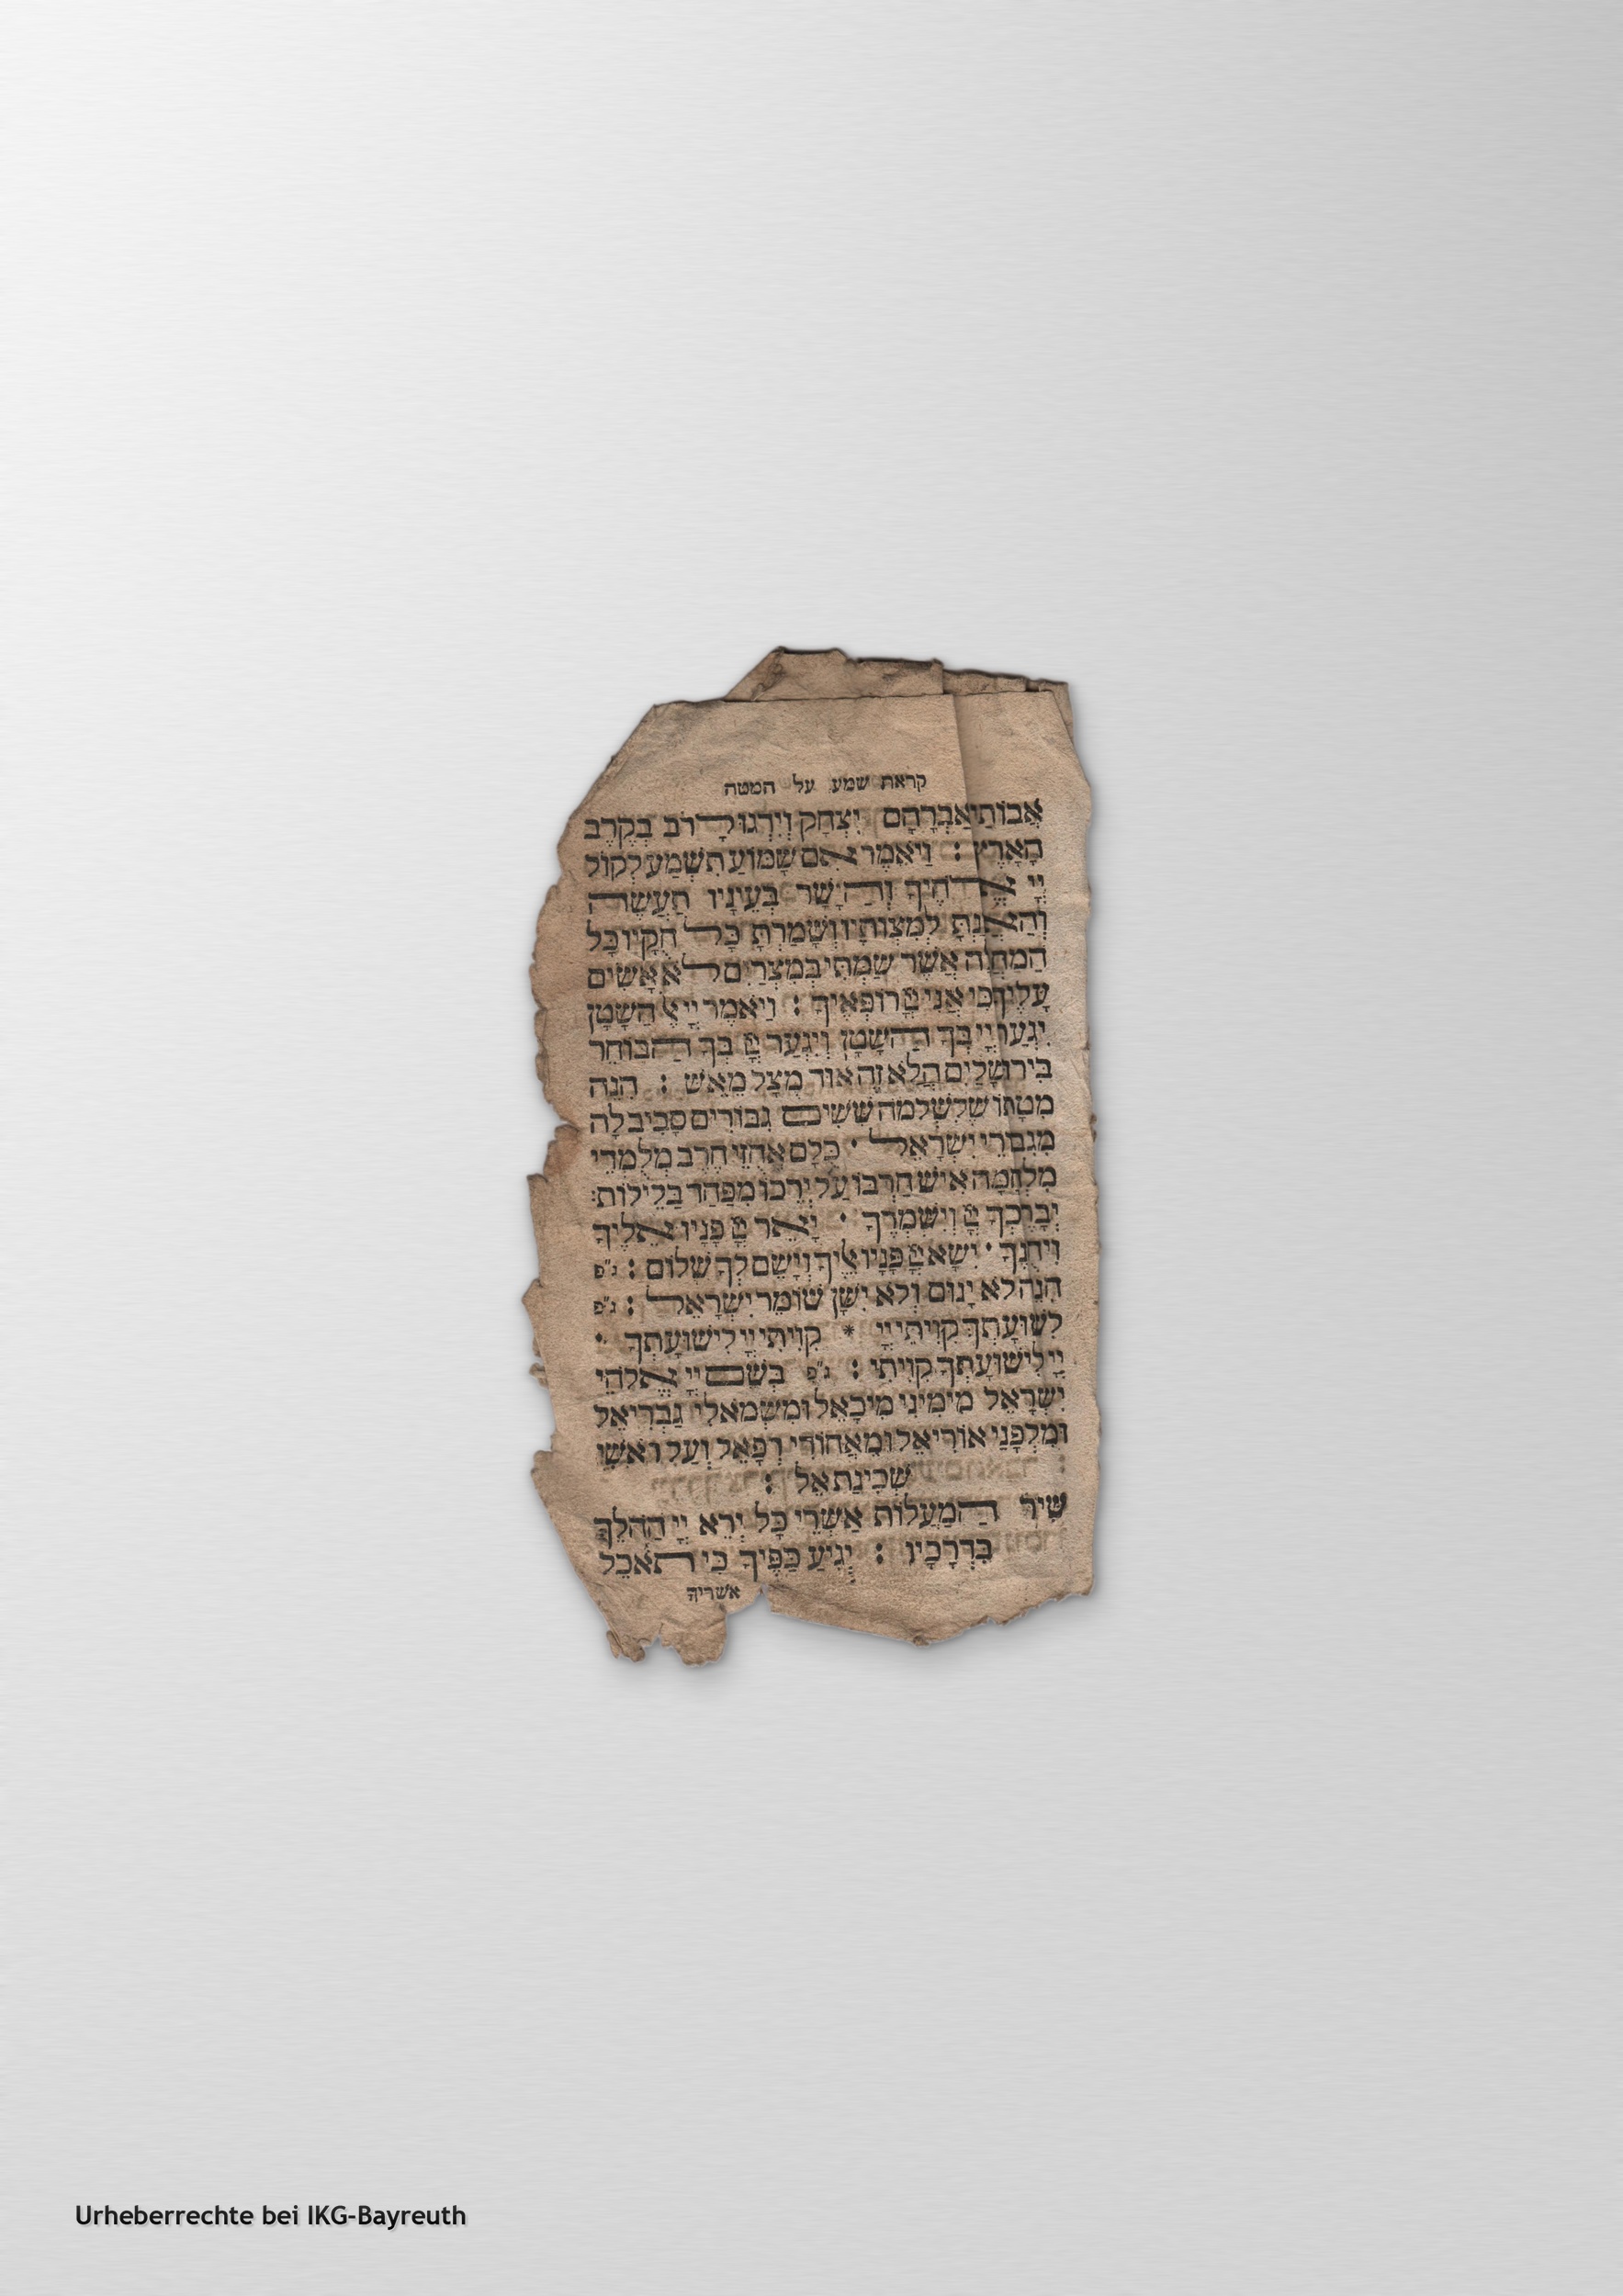 קראת שמע על המטה
אֲבוֹתַי אַבְרָהָם יִצְחָק וְיִדְגּוּ לָרֹב בְּקֶרֶב
הָאָרֶץ : וַיֹאמֶר אִם שָׁמוֹעַ תִּשְׁמַע לְקוֹל
יְיָ אֱלֹהֶיךָ וְהַיָשָׁר בְּעֵינָיו תַּעֲשֶׂה
וְהַאֲזַנְתָּ לְמִצְוֹתָיו וְשָׁמַרְתָּ כָּל חֻקָיו כָּל
הַמַחֲלָה אֲשֶׁר שַׂמְתִּי בְמִצְרַיִם לֹא אָשִׂים
עָלֶיךָ כִּי אֲנִי יְיָ רוֹפְאֶיךָ : וַיֹאמֶר יְיָ אֶל הַשָׂטָן
יִגְעַר יְיָ בְּךָ הַשָׂטָן וְיִגְעַר יְיָ בְּךָ הַבּוֹחֵר
בִּירוּשָׁלַיִם הֲלֹא זֶה אוּד מֻצָל מֵאֵשׁ : הִנֵה
מִטָתוֹ שֶׁלִשְׁלֹמֹה שִׁשִׁים גִבּוֹרִים סָבִיב לָהּ
מִגִבֹּרֵי יִשְׂרָאֵל ׃ כֻּלָם אֲחֻזֵי חֶרֶב מְלֻמְדֵי
מִלְחָמָה אִישׁ חַרְבּוֹ עַל יְרֵכוֹ מִפַּחַד בַּלֵילוֹת:
יְבָרֶכְךָ יְיָ וְיִשְׁמְרֶךָ ׃ יָאֵר יְיָ פָּנָיו אֵלֶיךָ
וִיחֻנֶךָ ׃ יִשָׂא יְיָ פָּנָיו אֵלֶיךָ וְיָשֵׂם לְךָ שָׁלוֹם : ג"פ
הִנֵה לֹא יָנוּם וְלֹא יִישָׁן שׁוֹמֵר יִשְׂרָאֵל : ג"פ
לִישׁוּעָתְךָ קִוִיתִי יְיָ * קִוִיתִי יְיָ לִישׁוּעָתְךָ ׃
יְיָ לִישׁוּעָתְךָ קִוִיתִי : ג"פ בְּשֵׁם יְיָ אֱלֹהֵי
יִשְׂרָאֵל מִימִינִי מִיכָאֵל וּמִשְׂמֹאלִי גַבְרִיאֵל
וּמִלְפָנַי אוּרִיאֵל וּמֵאֲחוֹרַי רְפָאֵל וְעַל רֹאשִׁי
שְׁכִינַת אֵל :
שִׁיר הַמַעֲלוֹת אַשְׁרֵי כָּל יְרֵא יְיָ הַהֹלֵךְ
בִּדְרָכָיו : יְגִיעַ כַּפֶּיךָ כִּי תֹאכֵל
אשריך
Urheberrechte bei IKG-Bayreuth